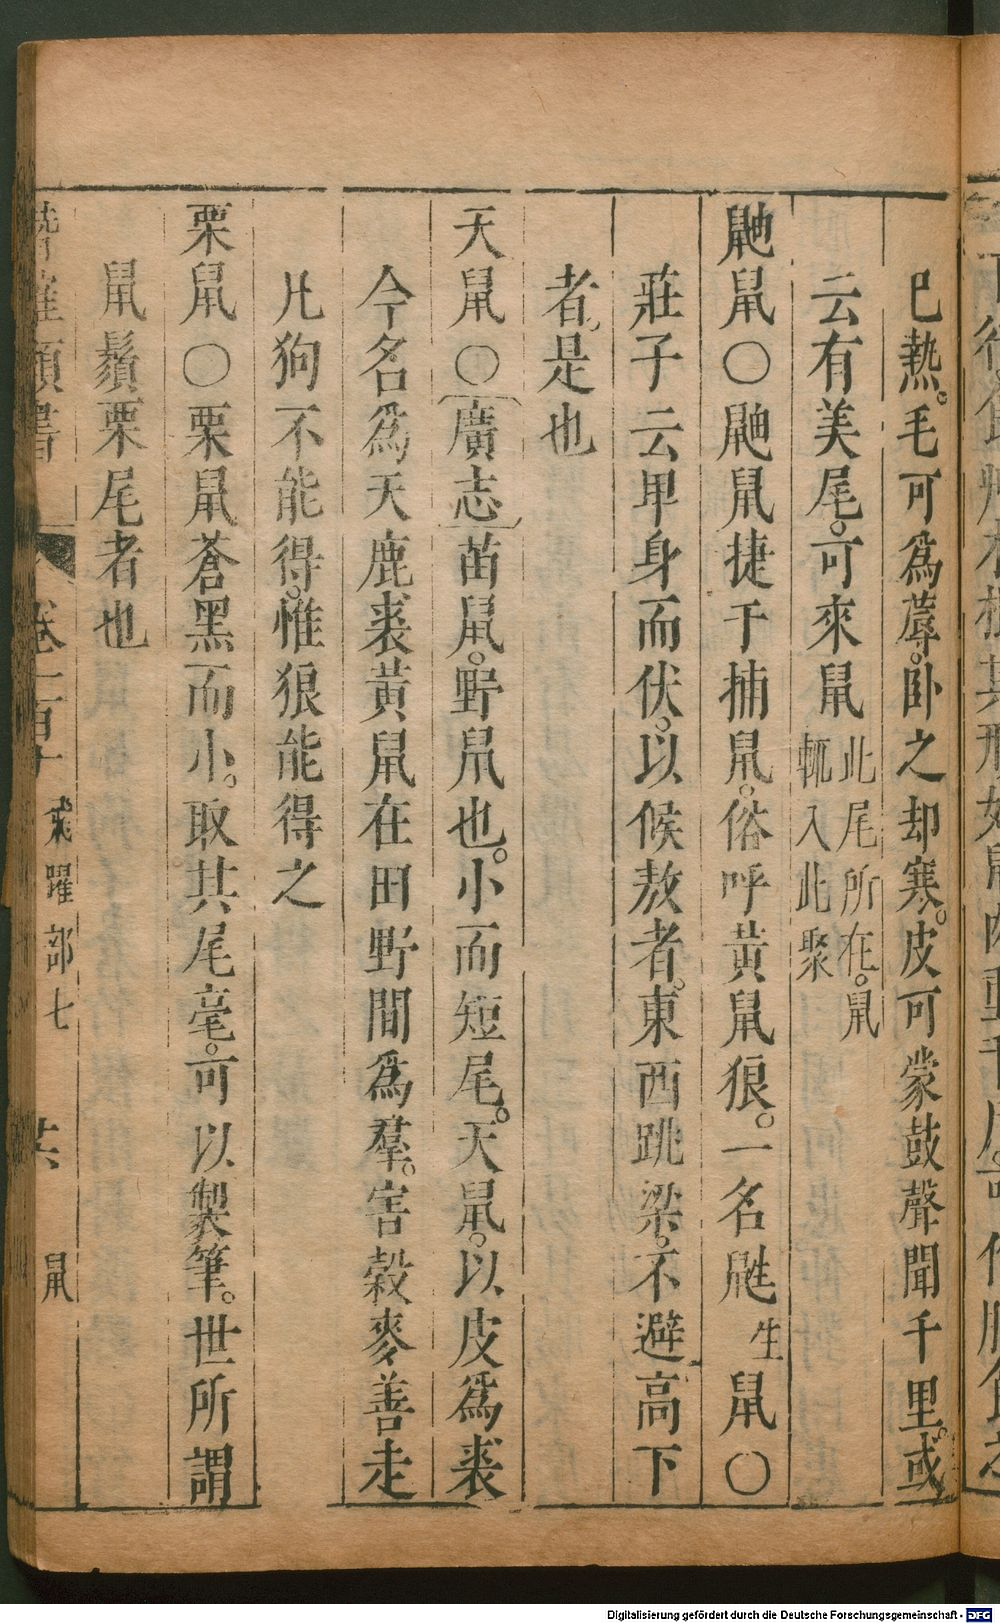 已熱毛可爲蓐臥之却寒皮可蒙鼓聲聞千里或
云有美尾可來鼠此尾所在鼠
輒入此聚
鼬鼠○鼬鼠捷于捕鼠俗呼黃鼠狼一名鼪生鼠○
莊子云卑身而伏以候敖者東西跳梁不避高下
者是也
天鼠○廣志䑕鼠野鼠也小而短尾天鼠以皮爲裘
今名爲天鹿裘黃鼠在田野間爲羣害榖麥善走
凡狗不能得惟狼能得之
栗鼠○栗鼠蒼黑而小取其尾毫可以製筆世所謂
鼠鬚栗尾者也
類書 卷一百十 飛躍部七 共 鼠
Digitalisierung gefördert durch die Deutsche Forschungsgemeinschaft - DFG